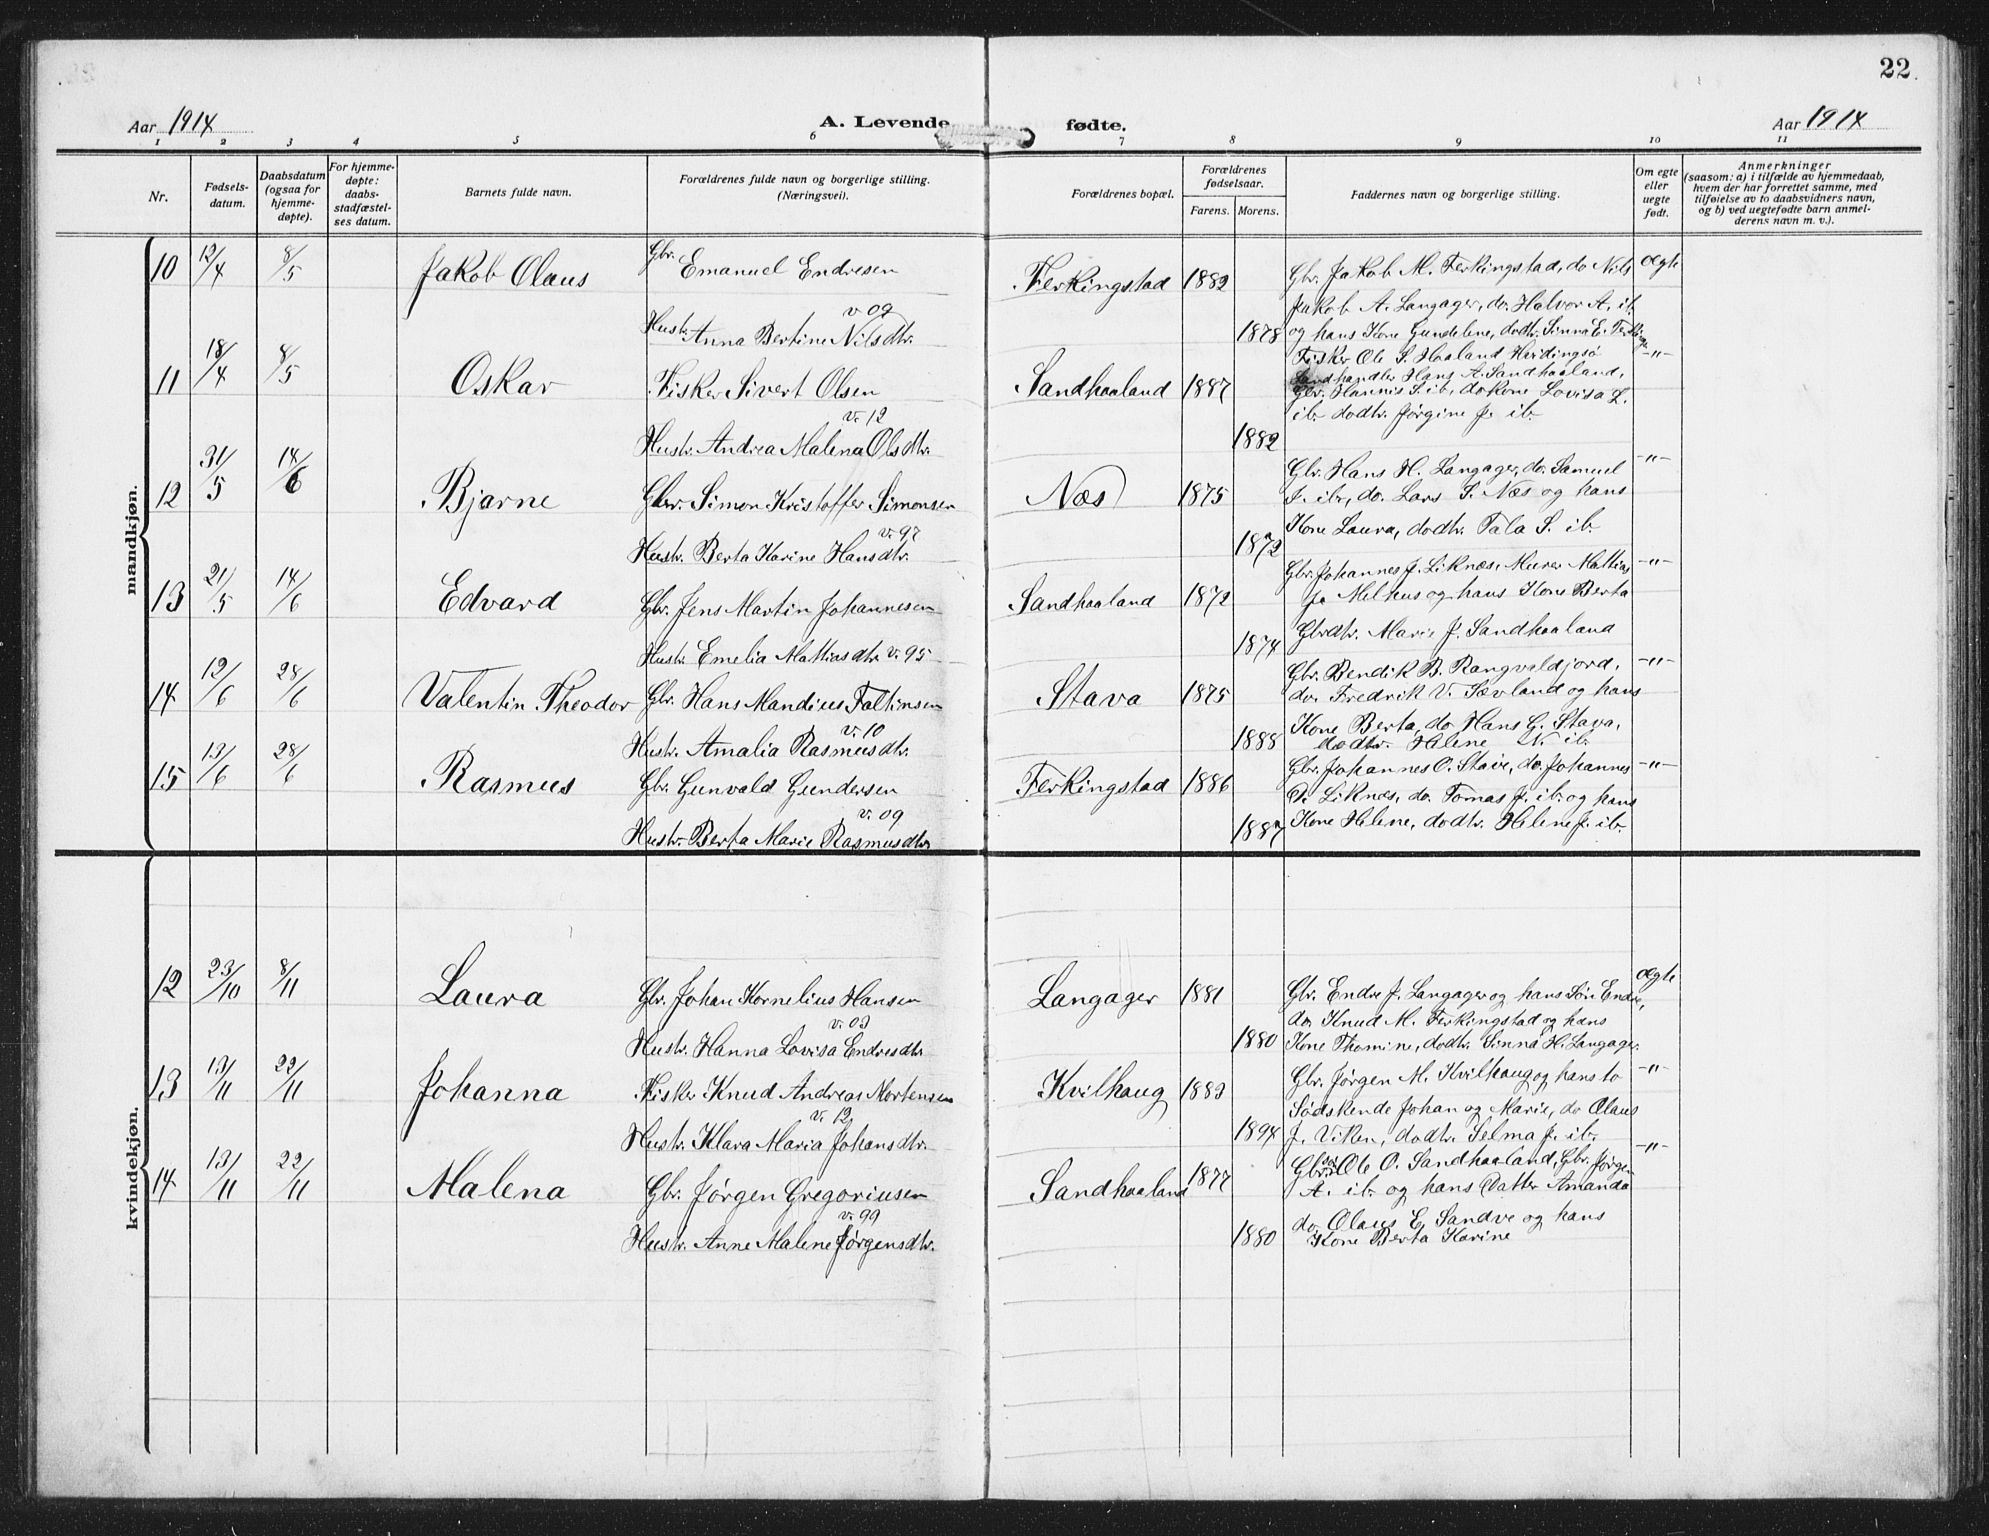 22
Aar 1914
A. Levende
fødte.
Aar 1914
1 2 3 4 5 6 7 8 9 10 11
Nr.
Fødsels-
datum.
Daabsdatum
(ogsaa for
hjemme-
døpte).
For hjemme-
døpte:
daabs-
stadfæstel-
ses datum.
Barnets fulde navn.
Forældrenes fulde navn og borgerlige stilling.
(Næringsvei).
Forældrenes bopæl.
Forældrenes
fødselsaar.
Farens. Morens.
Faddernes navn og borgerlige stilling.
Om egte
eller
uegte
født.
Anmerkninger
(saasom: a) i tilfælde av hjemmedaab,
hvem der har forrettet samme, med
tilføielse av to daabsvidners navn,
og b) ved uegtefødte barn anmel-
derens navn m. v.).
mandkjøn.
10 12/4 8/5 Jakob Olaus
Gbr. Emanuel Endresen
v 09
Hustr. Anna Bertine Nilsdtr.
Ferkingstad 1882
1878
Gbr. Jakob M. Ferkingstad, do Nils
Jakob A. Langager, do. Halvor A. ib.
og hans Kone Gundelene, dodtr. Sinna E.
ægte
11 18/4 8/5 Oskar
Fisker Sivert Olsen
v. 12
Hustr. Andrea Malena Olsdtr.
Sandhaaland 1887
1882
Fisker Ole S. Haaland Hvidingsö
Landhandler Hans A. Sandhaaland,
Gbr. Hannis S. ib, do kone Lovisa L.
ib. dodtr. Jørgine J. ib.
-"-
12 31/5 14/6 Bjarne
Gbr. Simon Kristoffer Simonsen
v. 97
Hustr. Berta Karine Hansdtr.
Næs 1875
1872
Gbr. Hans H. Langager, do. Samuel
S. ib., do. Lars S. Næs og hans
Kone Laura, dodtr. Tala S. ib.
-"-
13 21/5 14/6 Edvard
Gbr. Jens Martin Johannesen
Hustr. Emelia Mattiasdtr. v. 95
Sandhaaland 1872
1874
Gbr. Johannes J. Liknæs, Murer Mattias
J. Melhus og hans Kone Berta
Gbrdtr. Marie J. Sandhaaland
-"-
14 12/6 28/6 Valentin Theodor
Gbr. Hans Mandius Faltinsen
v. 10
Hustr. Amalia Rasmusdtr.
Stava 1875
1888
Gbr. Bendik B. Rangvaldjord,
do. Fredrik V. Sævland og hans
Kone Berta, do Hans G. Stava,
dodtr. Helene N. ib.
-"-
15 13/6 28/6 Rasmus
Gbr. Gunvald Gundersen
v. 09
Hustr. Berta Marie Rasmusdtr.
Ferkingstad 1886
1887
Gbr. Johannes O. Stave, do. Johannes
D. Liknæs, do. Tomas J. ib. og hans
Kone Helene, dodtr. Helene J. ib.
-"-
kvindekjøn.
12 23/10 8/11 Laura
Gbr. Johan Kornelius Hansen
v. 03
Hustr. Hanna Lovisa Endresdtr.
Langager 1881
1880
Gbr. Endre J. Langager og hans Søn Endre,
do. Knud M. Ferkingstad og hans
Kone Thomine, dodtr. Sinna H. Langager.
ægte
13 13/11 22/11 Johanna
Fisker Knud Andreas Mortensen
v. 12
Hustr. Klara Maria Johansdtr.
Kvilhaug 1883
1894
Gbr. Jørgen M. Kvilhaug og hans to
Södskende Johan og Marie, do Olaus
J. Viken, dodtr. Selma J. ib.
-"-
14 13/11 22/11 Malena
Gbr. Jørgen Gregoriusen
v. 99
Hustr. Anne Malene Jørgensdtr.
Sandhaaland 1877
1880
Gbrsøn Ole O. Sandhaaland, Gbr. Jørgen
A. ib. og hans Datter Amanda
do. Olaus E. Sandve og hans
Kone Berta Karine
-"-